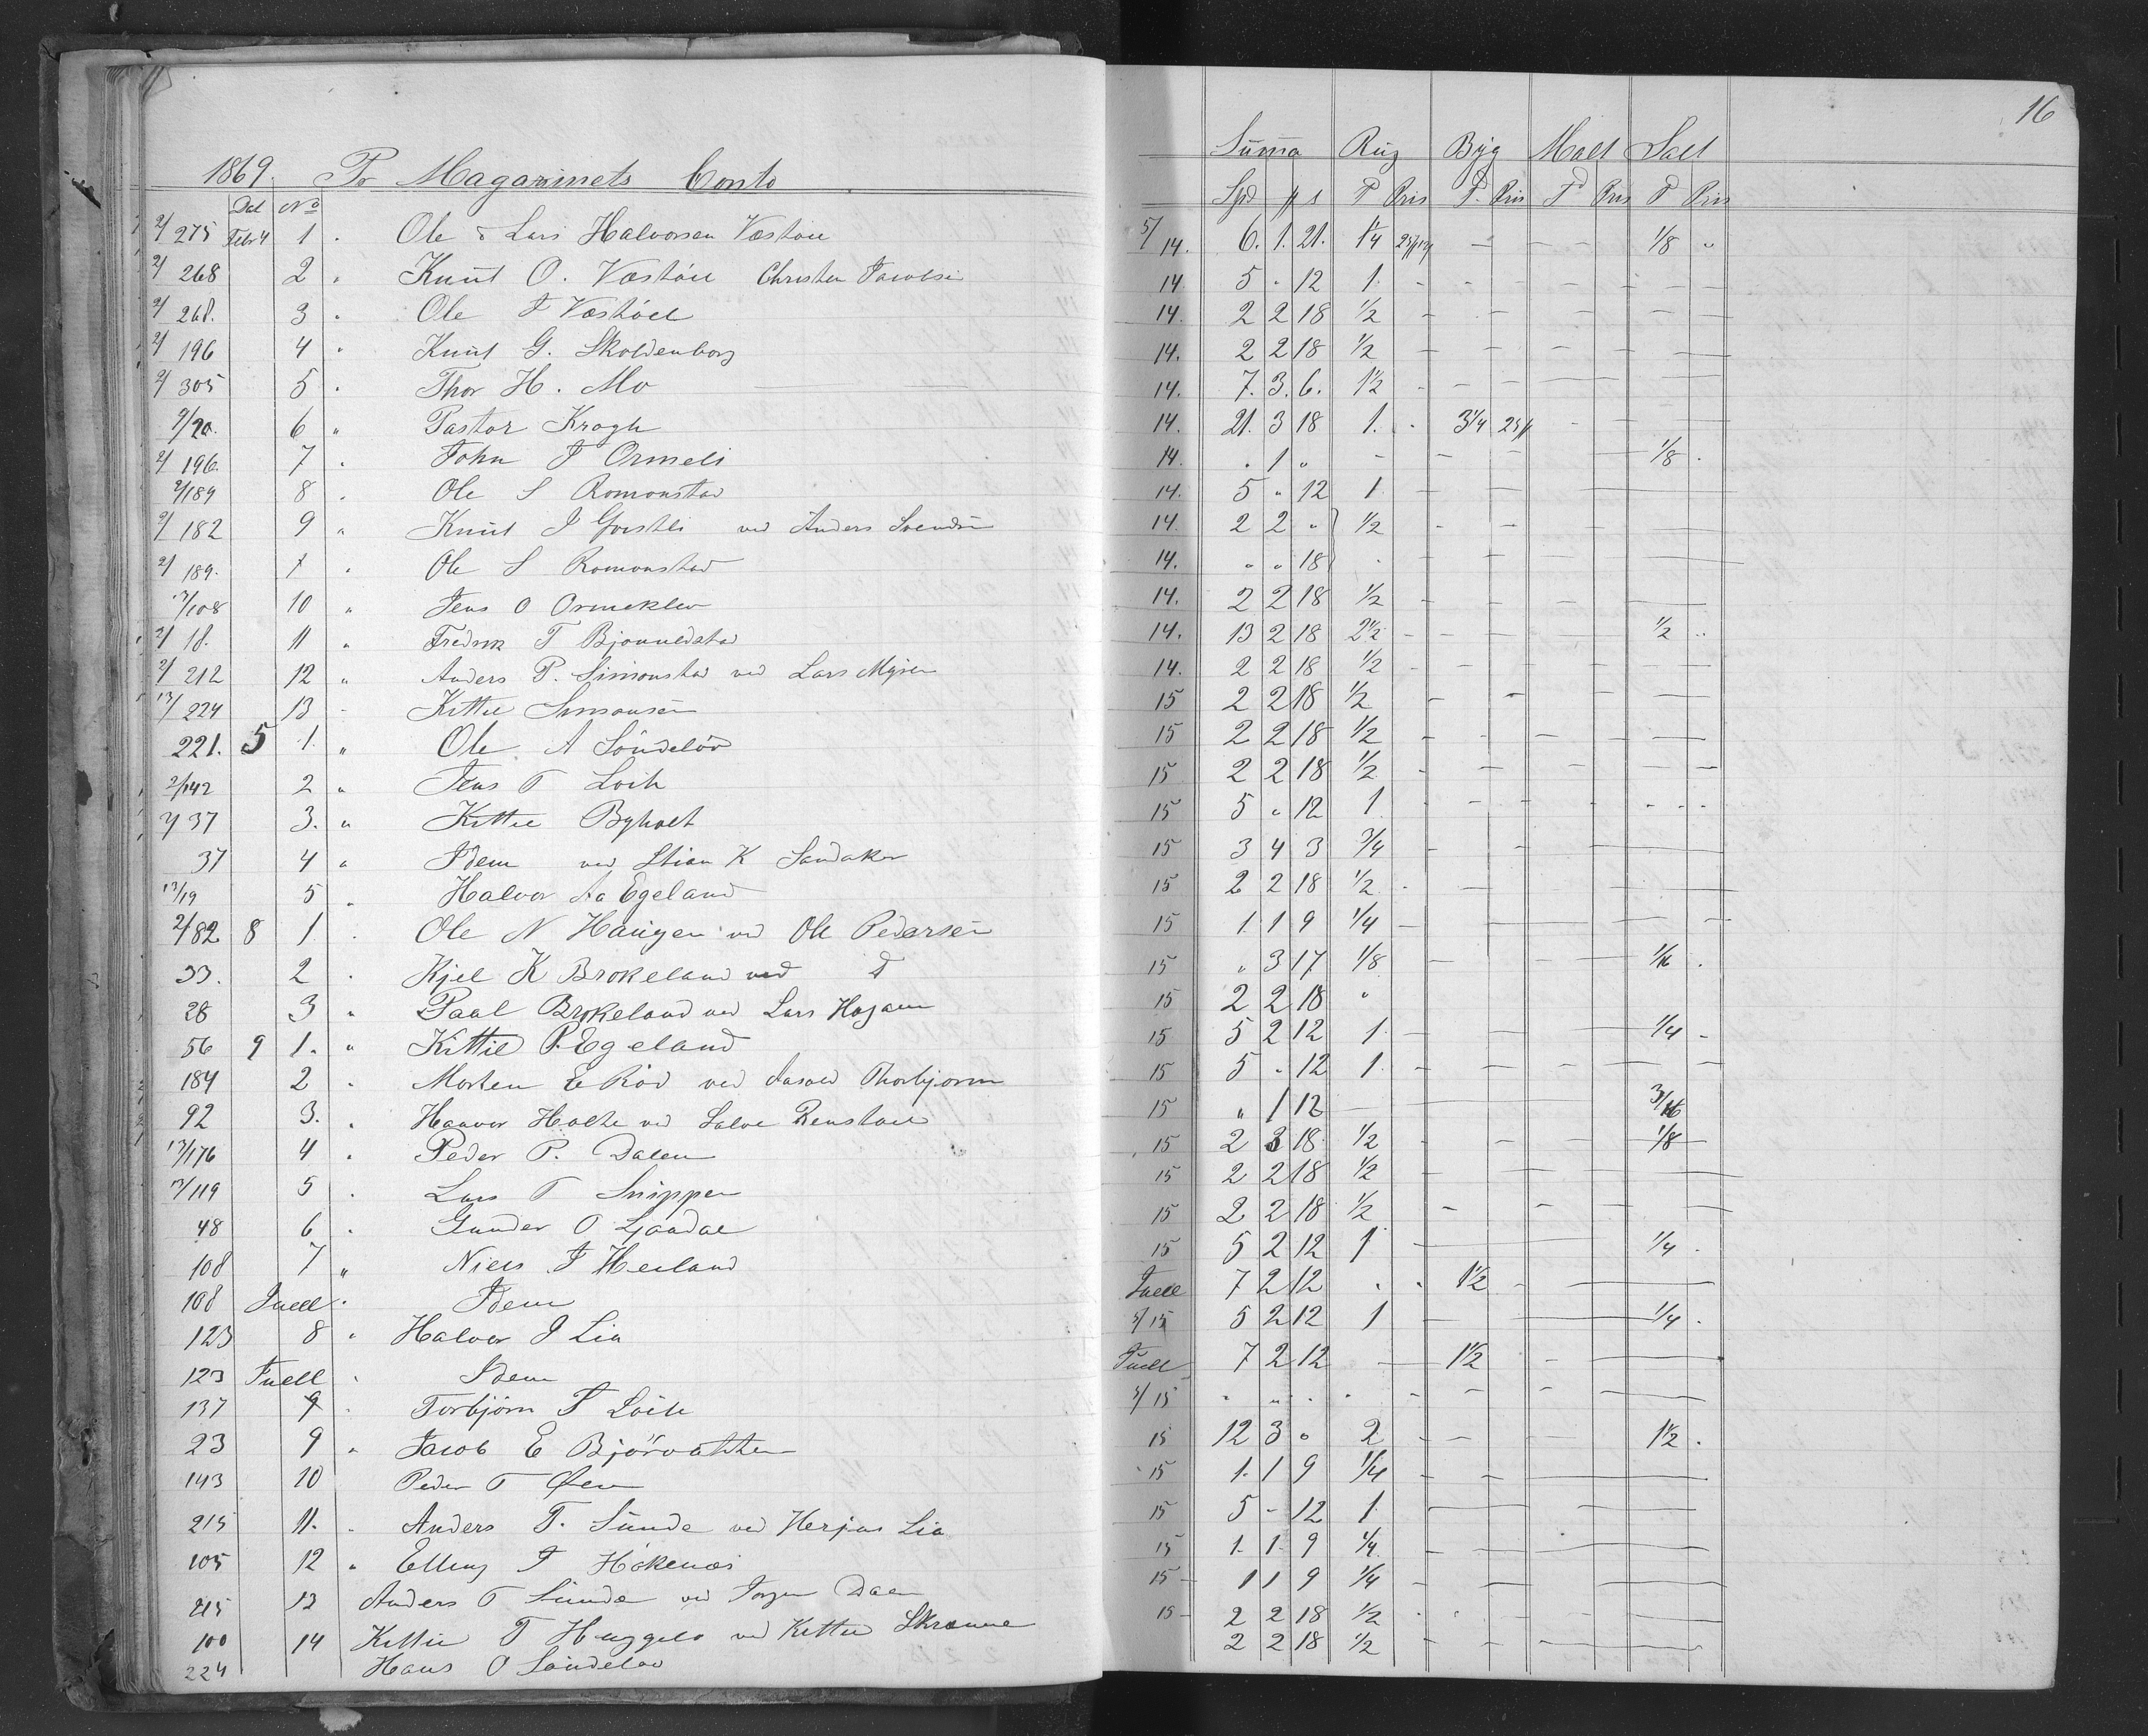 16
1869. Pr Magazinets Conto
Summa Rug Byg Malt Salt
Dat No Spd # s T Pris T. Pris T Pris T Pris
2/275 Febr 4 1 . Ole & Lars Halvorsen Vestøll 5/14. 6. 1. 21. 1 1/4 — — — 1/8 "
2/268 2 " Knut O. Vestøll Christen Jacobsen 14. 5 " 12 1
2/268. 3 " Ole T Vestøll 14. 2 2 18 1/2
2/196 4 " Knut G. Skoldenborg 14. 2 2 18 1/2
2/305 5 . Thor H. Mo 14. 7. 3. 6. 1 1/2
2/20. 6 " Pastor Krogh 14. 21. 3 18 1. 3 1/4 25#
2/196. 7 . John T Ormeli 14. " 1 " — 1/8
2/189 8 . Ole S Romonstad 14. 5 " 12 1
2/182 9 " Knut J ved Anders Svendsen 14. 2 2 " 1/2
2/189. . Ole S Romonstad 14. " " 18
13/108 10 " Jens O Ormeklev 14. 2 2 18 1/2
2/18. 11 " Fredrik T 14. 13 2 18 2 1/2 1/2 "
2/212 12 " Anders P. Simonstad ved Lars Myren 14. 2 2 18 1/2
13/224 13 - Kittil Simonsen 15 2 2 18 1/2
221. 5 1. " Ole A Søndeløv 15 2 2 18 1/2
2/142 2 " Jens T Loih 15 2 2 18 1/2
2/37 3. " Kittil Byholt 15 5 " 12 1
37 4 " Idem ved Stian K Sandaker 15 3 4 3 3/4
13/19 5 " Halvor Aa Egeland 15 2 2 18 1/2
2/82 8 1 . Ole N Haugen ved Ole Pedersen 15 1 1 9 1/4
33. 2 . Kjel K Brokeland ved d 15 " 3 17 1/8 1/16
28 3 " Paal Brokeland ved Lars 15 2 2 18 "
56 9 1. " Kittil P. Egeland 15 5 2 12 1 1/4
184 2 . Morten E Röd ved Thorbjørn 15 5 " 12 1
92 3. . Haavor Holte ved Salve Renstøll 15 " 1 12 3/16
13/176 4 . Peder P. Dalen 15 2 3 18 1/2 1/8
13/119 5 . Lars T Snippen 15 2 2 18 1/2
48 6 . Gunder O Ljaadal 15 2 2 18 1/2
108 7 " Niels J Heiland 15 5 2 12 1 1/4
108 Juell . Idem Juell 7 2 12 " " 1 1/2
123 8 " Halvor J Lia 5/15 5 2 12 1 1/4
123 Juell . Idem Juell 7 2 12 — 1 1/2
137 9 . Torbjørn T Loih 5/15 " " "
23 9 " Jacob E Björvatten 15 12 3 " 2 1 1/2
143 10 Peder T Øen 15 1. 1 9 1/4
215 11. . Anders T. Sunde ved Herjus Lia 15 5 - 12 1
105 12 " Elling T Hökenæs 15 1. 1. 9 1/4
215 13 Anders T Sunde ved Jorgen Dalen 15 1 1 9 1/4
100 14 Kittil T Huggelo ved Kittil Skranne 15 2 2 18 1/2
224 Hans O Søndeløv 2 2 18 1/2